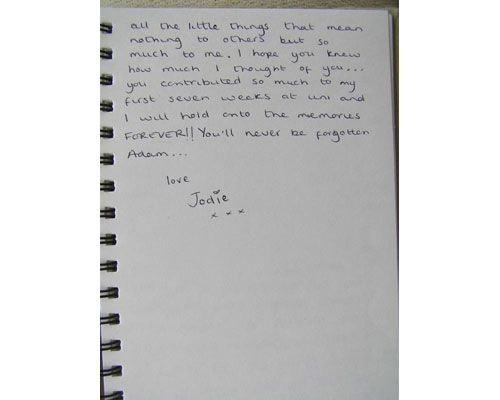 all the little things that mean
nothing to others but so
much to me. I hope you knew
how much I thought of you...
you contributed so much to my
first seven weeks at uni and
I will hold onto the memories
FOREVER!! You'll never be forgotten
Adam...
love
Jodie
x x x